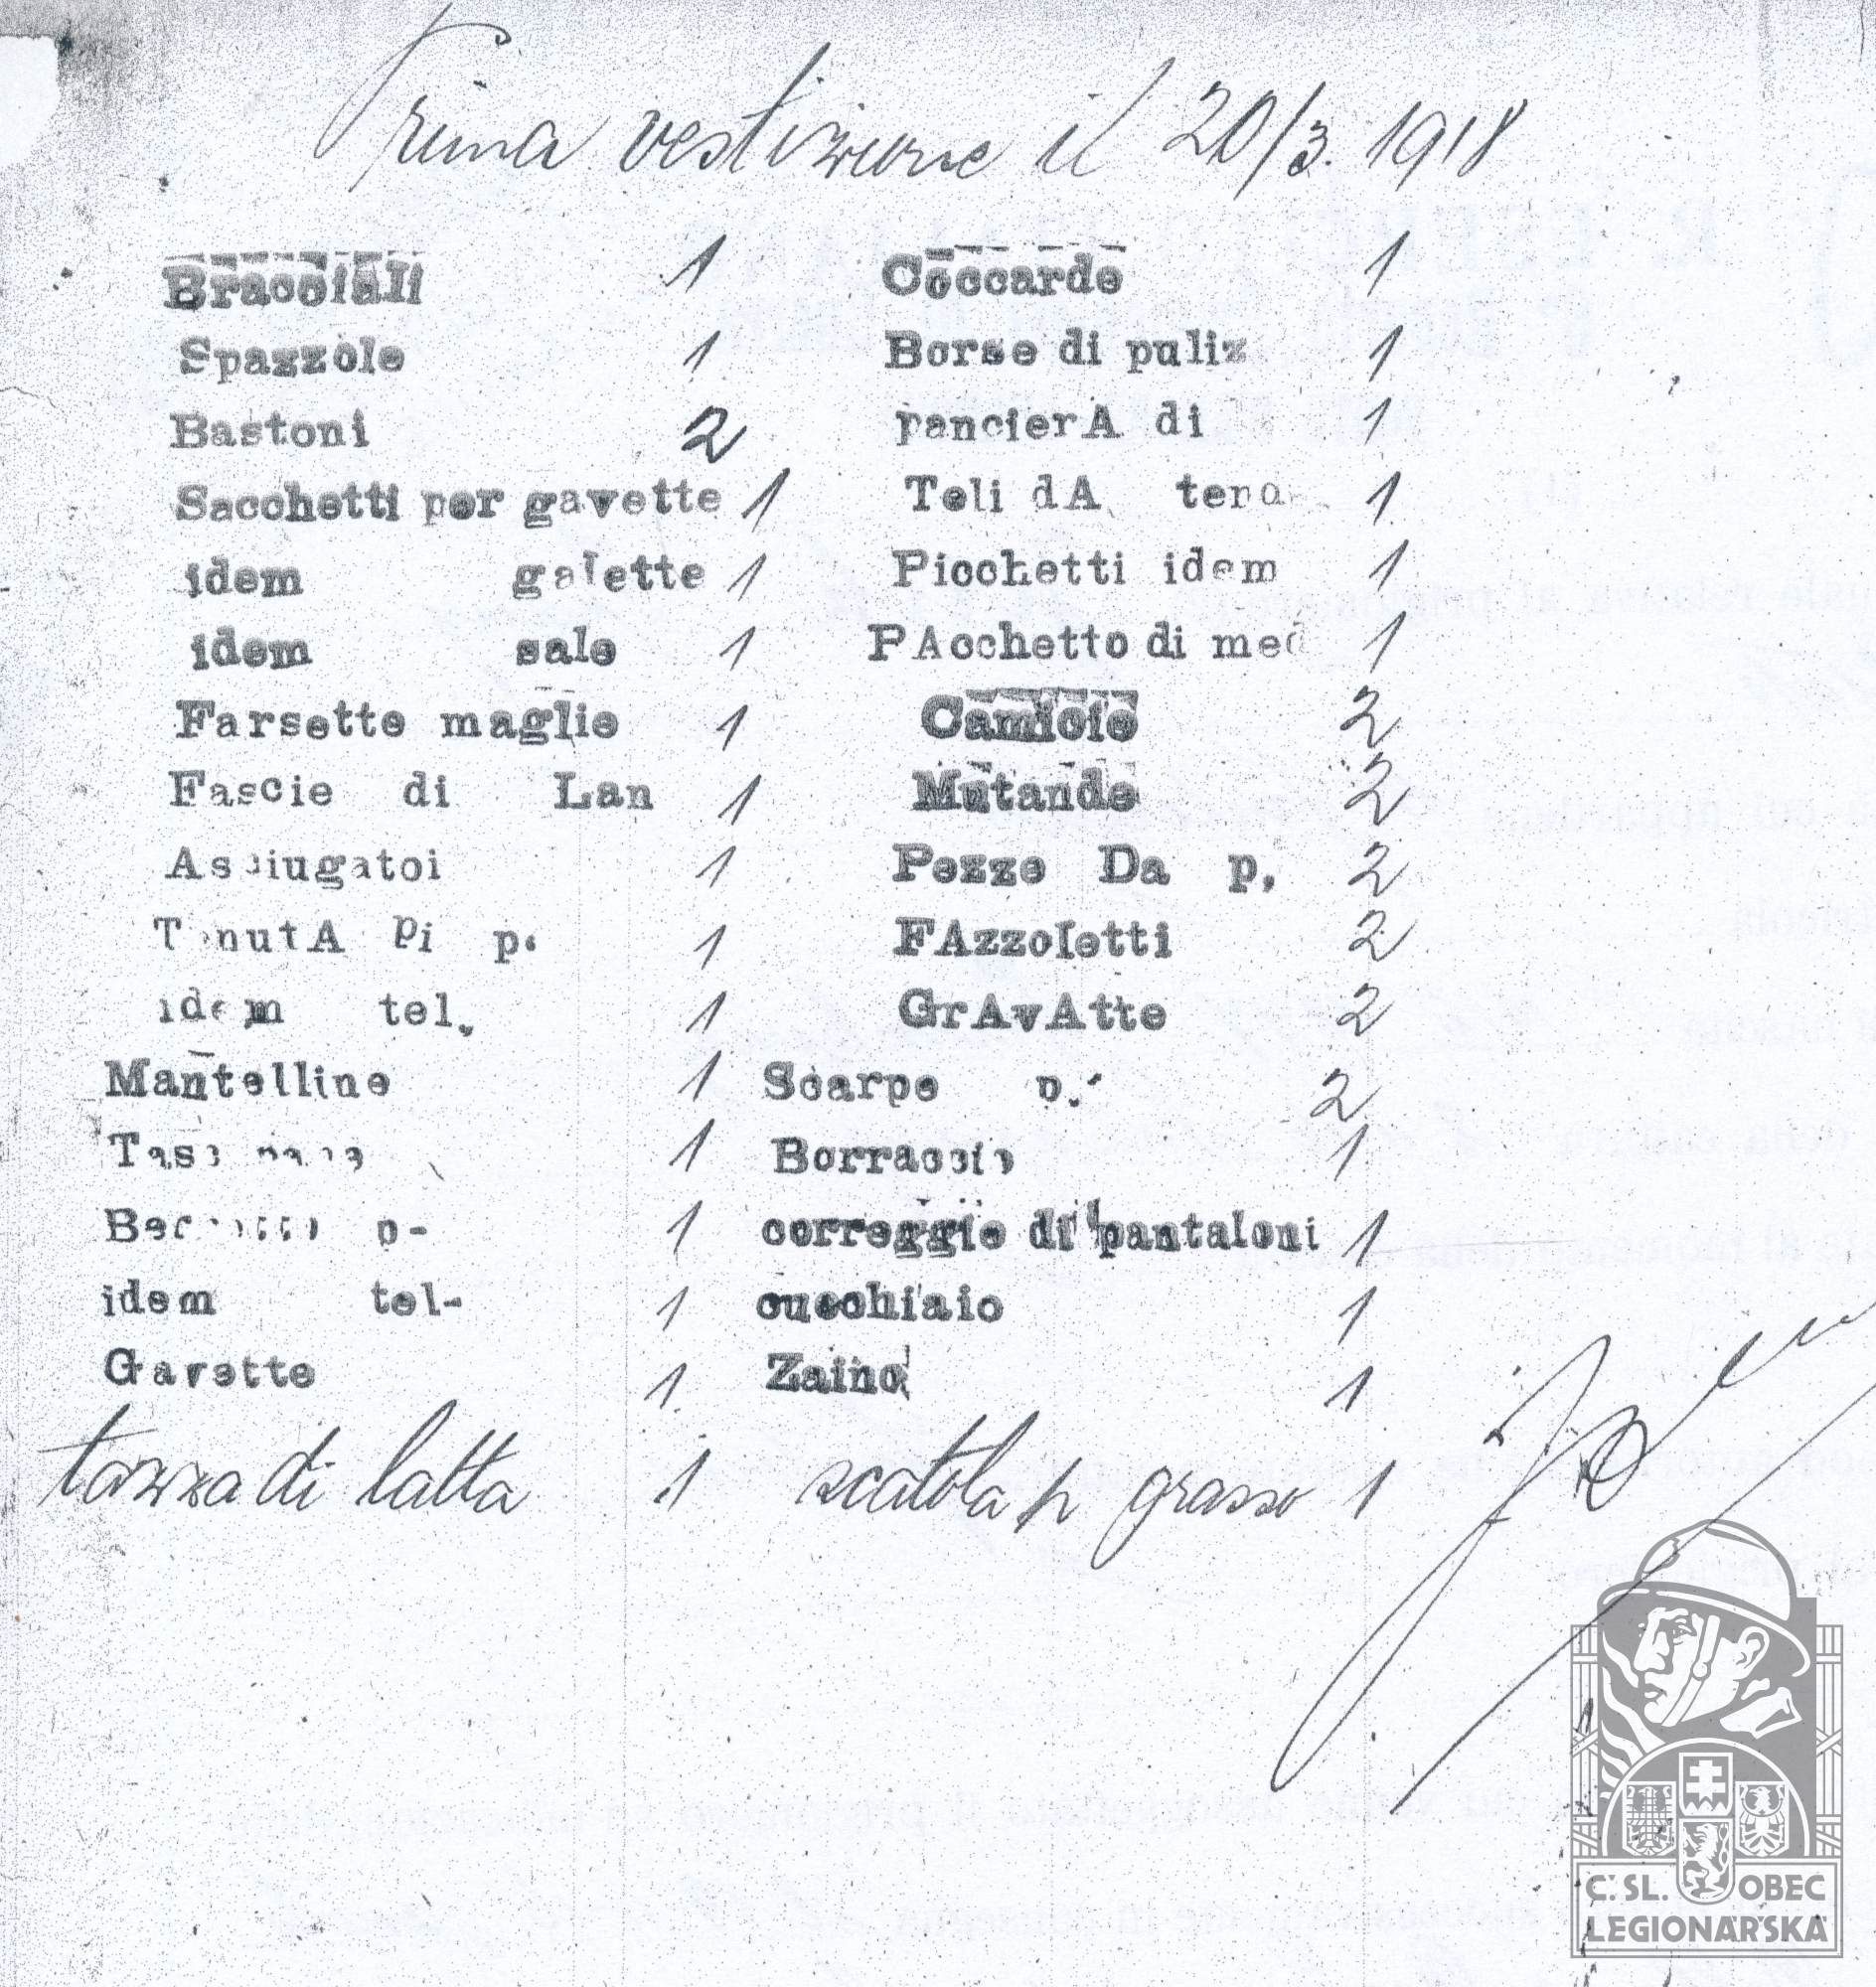 Prima vestizione il 20/3. 1918
Bracciali 1 Coccarde 1
Spazzole 1 Borse di puliz 1
Bastoni 2 pancierA di 1
Sacchetti per gavette 1 Teli dA 1
idem galette 1 Picchetti idem 1
idem sale 1 PAcchetto di med 1
Farsette maglie 1 Camicie 2
Fascie di Lan 1 Mutande 2
Asciugatoi 1 Pezze Da p. 2
TenutA Di p. 1 FAzzoletti 2
idem tel. 1 GrAvAtte 2
Mantelline 1 Scarpe p. 2
1 Borraccie 1
p- 1 correggie di pantaloni 1
idem tel- 1 cucchiaio 1
Gavette 1 Zaino 1
tazza di latta 1 scatola p grasso 1
Č. SL. OBEC
LEGIONÁŘSKÁ